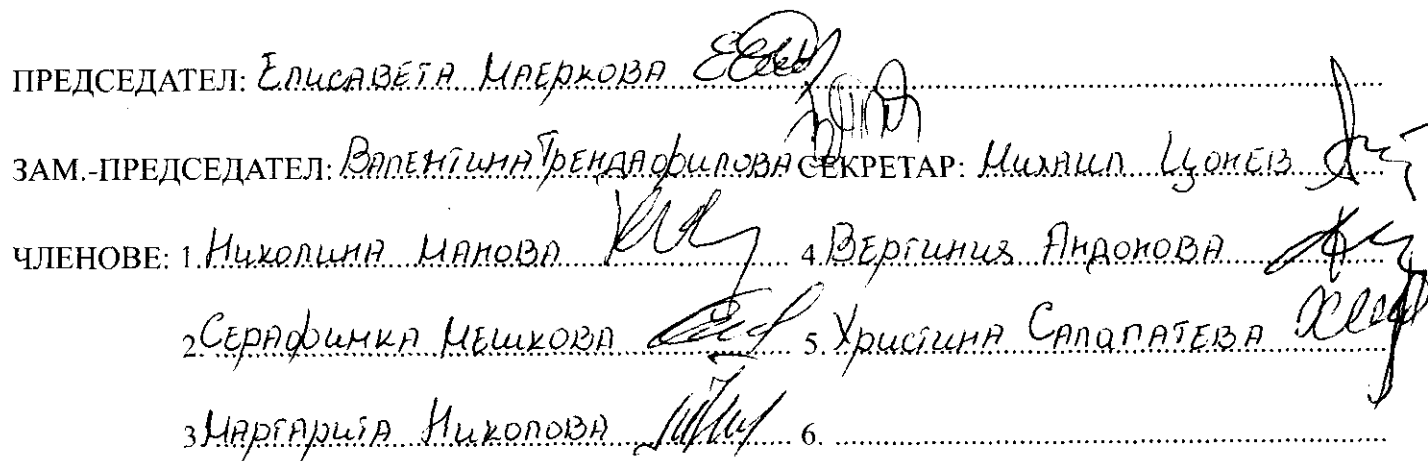 ПРЕДСЕДАТЕЛ: Елисавета Маеркова
ЗАМ.-ПРЕДСЕДАТЕЛ: Валентина Трендафилова СЕКРЕТАР: Михаил Цонев
ЧЛЕНОВЕ: 1. Николина Манова 4. Вергиния Андонова
2. Серафимка Мешкова 5. Христина Салапатева
3. Маргарита Николова 6.